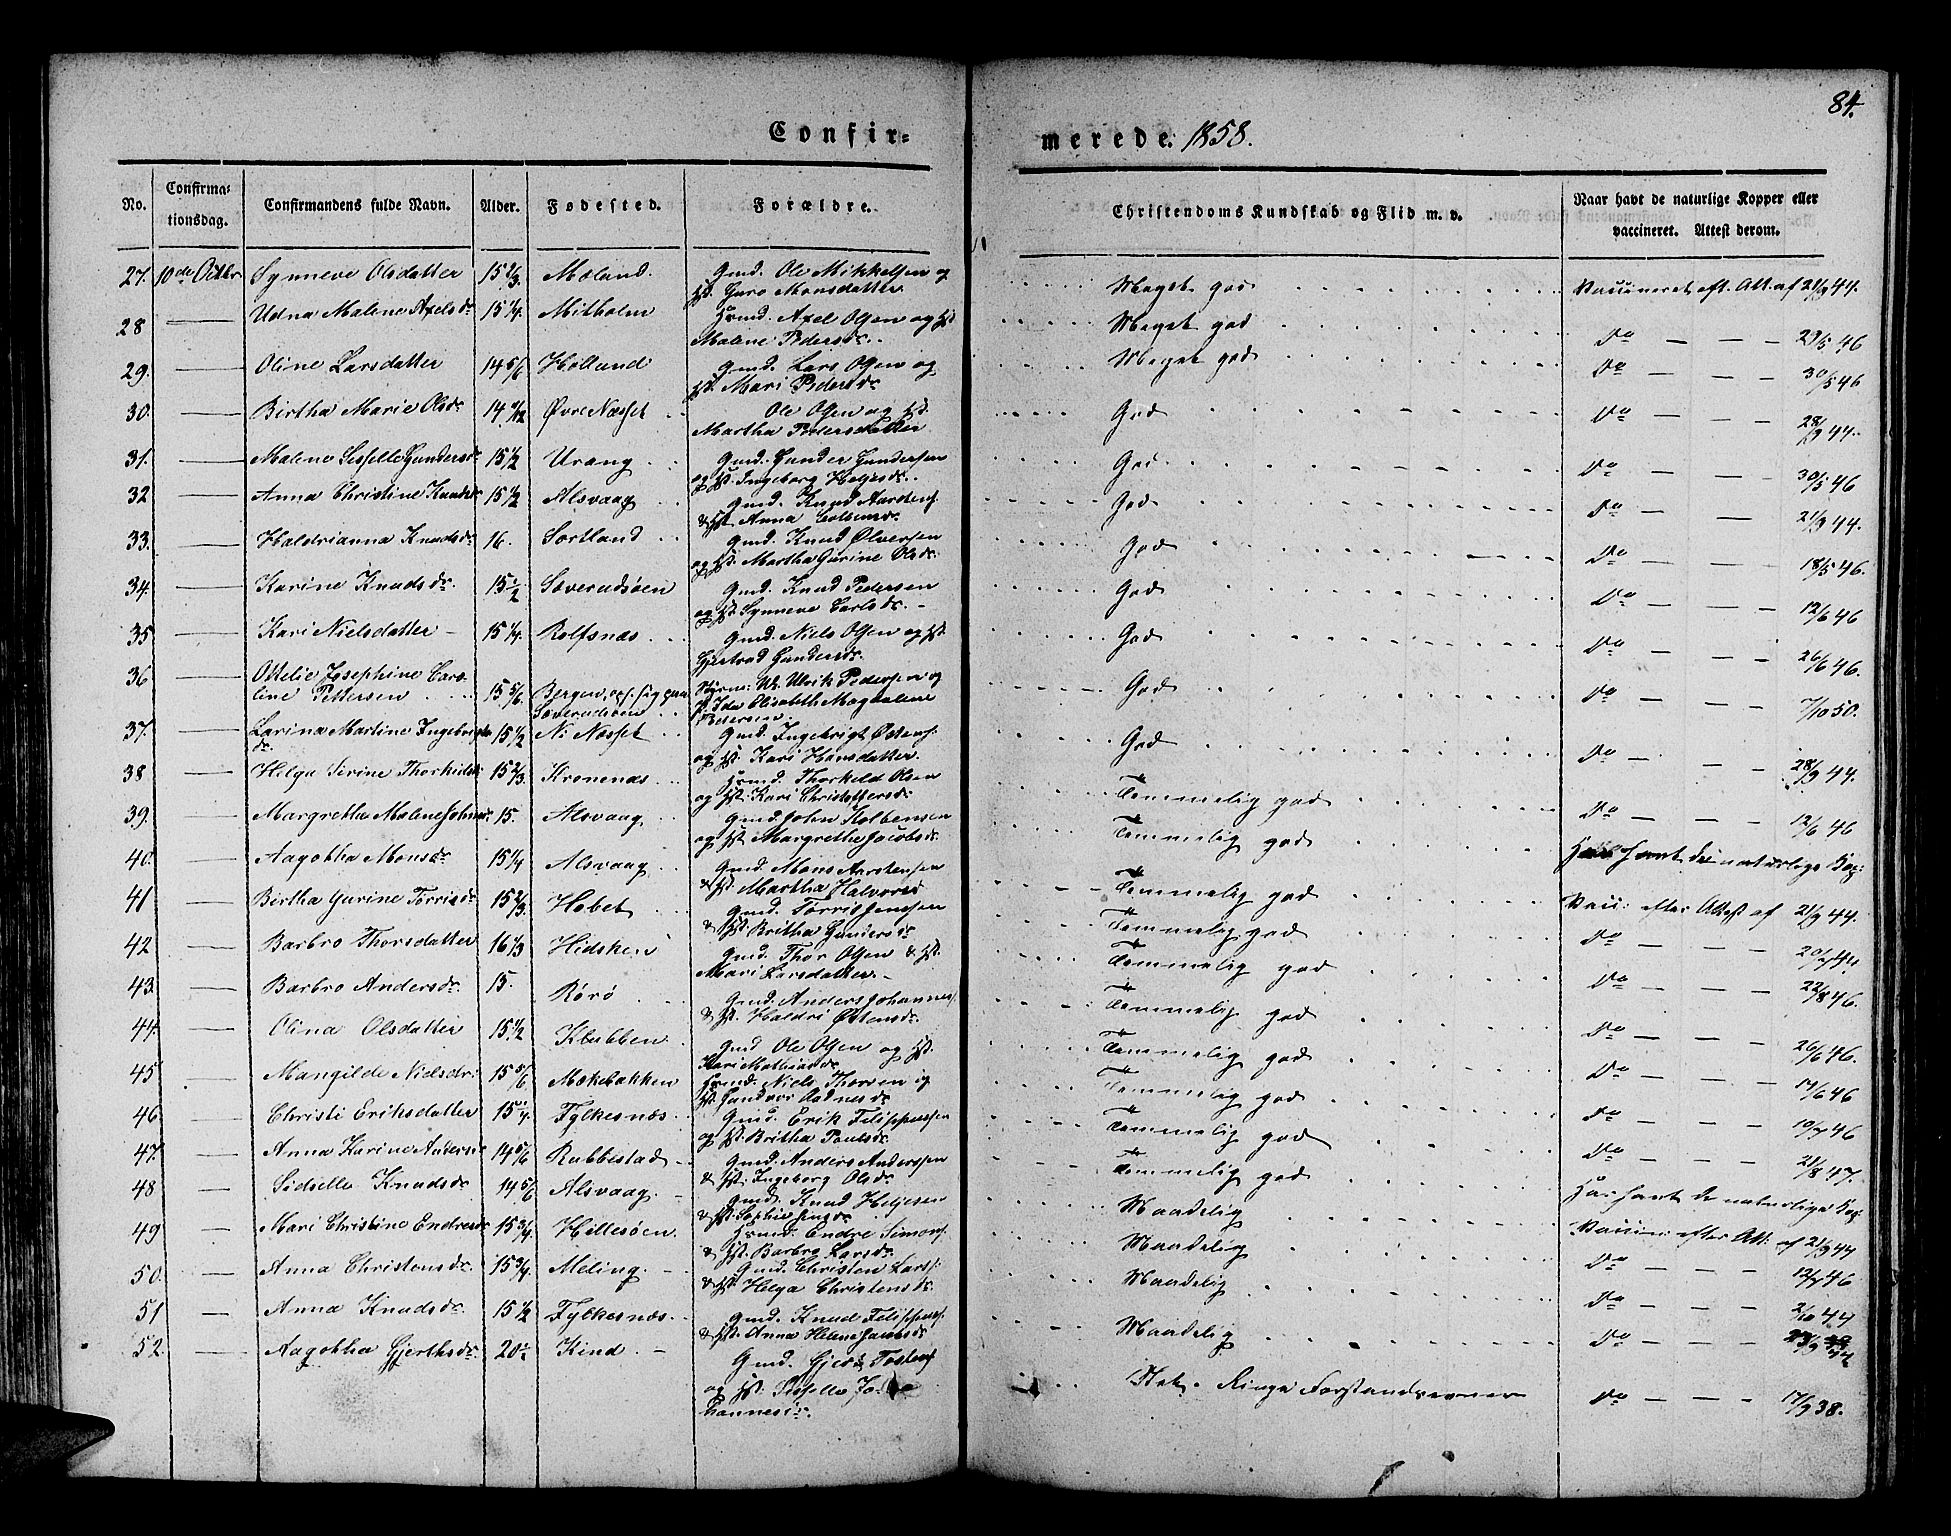 84.
Confir-
merede. 1858.
No. Confirma-tionsdag. Confirmandens fulde Navn. Alder. Fødested. Forældre. Christendoms Kundskab og Flid m. v. Naar havt de naturlige Kopper eller vaccineret. Attest derom.
27. 10de Octbr Synneve Olsdatter 15 2/3. Mæland. Gmd. Ole Mikkelsen og Hst. Guro Monsdatter Meget god Vaccineret eft. Att. af 21/9 44.
28 Udna Malene Axelsdr 15 1/4. Mitholm Hrmd. Axel Olsen og Hst Malene Pedersdr. Meget god Do 29/5 46
29. Oline Larsdatter 14 5/6 Høiland Gmd. Lars Olsen og Hst. Mari Pedersdr Meget god Do 30/5 46
30. Birtha Marie Olsdr 14 11/12 Øvre Næsset Ole Olsen og Hst. Martha Pedersdatter God Do 28/9 44.
31. Malene Sisselle Gundersdr 15 1/2 Urang Gmd. Gunder Gundersen og Hst. Ingeborg Helgesdr. God Do 30/5 46
32 Anna Christine Knudsdr 15 1/2 Alsvaag Gmd. Knud Aarstens. & Hst Anna Colbensdr God Do 21/9 44.
33. Haldrianna Knudsdr 16. Sortland Gmd. Knud Ølversen og Hst. Martha Gurine Olsdr. God Do 18/5 46.
34. Karine Knudsdr. 15 1/2 Soverudsøen Gmd. Knud Pedersen og Hst Synneve Carlsdr. God Do 12/6 46
35 Kari Nielsdatter 15 1/4. Rolfsnæs Gmd. Niels Olsen og Hst Gjertrud Gundersdr. God Do 26/6 46.
36 Ottelie Josephine Caro-
line Pettersen 15 5/6. Bergen, op. sig paa Soverudsøen Ulrik Pedersen og Ida Elisabeth Magdalene Pedersen. God Do 7/10 50.
37. Larina Martine Ingebrigts dr 15 1/2 Ni Næsset Gmd. Ingebrigt Østens. og Hst Kari Hansdatter. God Do 28/9 44.
38 Helga Serine Thorkilds 15 2/3. Kronenæs Hrmd. Thorkeld Olsen og Hst. Kari Christoffersdr Temmelig god Do 12/6 46
39. Margretha Malene Johnsdr 15. Alsvaag Gmd John Kolbensen og Hst Margrethe Jacobsdr. Temmelig god Har havt de naturlige Kop:
40. Aagotha Monsdr 15 1/4 Alsvaag Gmd. Mons Aarstensen & Hst Martha Halvorsd Temmelig god Vacc: efter Attest af 21/9 44.
41 Birtha Gurine Torrisdr 15 2/3. Hobet Gmd. Torris Jensen & Hst. Britha Gundersdr Temmelig god Do 20/7 44.
42 Barbro Thorsdatter 16 1/3 Hidsken Gmd. Thor Olsen & Hst. Mari Larsdatter. Temmelig god Do 22/8 46.
43. Barbro Andersdr. 15. Rørø Gmd. Anders Johannes. & Hst. Haldri Østensdr. Temmelig god Do 26/6 46.
44. Olina Olsdatter 15 1/2 Klubben Gmd Ole Olsen og Hst. Kari Mathiasdr Temmelig god Do 17/6 46
45 Mangilde Nielsdr. 15 5/6 Mækebakken Hrmd. Niels Thorsen og Hst Sandvor Aadnesdr Temmelig god Do 10/7 46
46. Christi Eriksdatter 15 1/4. Fylkesnæs Gmd. Erik Filippussen og Hst. Britha Paulsdr Temmelig god Do 21/8 47.
47. Anna Karine Andersd 14 5/6 Rubbestad Gmd. Anders Anderssen & Hst. Ingeborg Olsdr. Temmelig god Har havt de naturlige Kop:
48 Sidselle Knudsdr 14 5/6 Alsvaag. Gmd. Knud Helgesen & Hst. Sophie Jensdr Maadelig Vaccin: efter Att: af 21/9 44
49 Mari Christine Endresdr 15 3/4. Hillesøen Hrmd. Endre Simons. & Hst. Barbro Larsdr. Maadelig Do 12/7 46
50. Anna Christensdr. 15 3/4. Meling. Gmd. Christen Larss. & Hst Helga Christensdr. Maadelig Do 2/10 44
51 Anna Knudsdr. 15 1/2 Fylkesnæs. Gmd. Knud Filippuss. & Hst. Anna Helene Jacobsdr Maadelig Do 23/9 44
52. Aagotha Gjerthsdr. 20 1/2 Kind. Gmd. Tostens. og Hst. Sisselle Jo-
hannesdr. Ringe Forstandsevner Do 17/9 38.